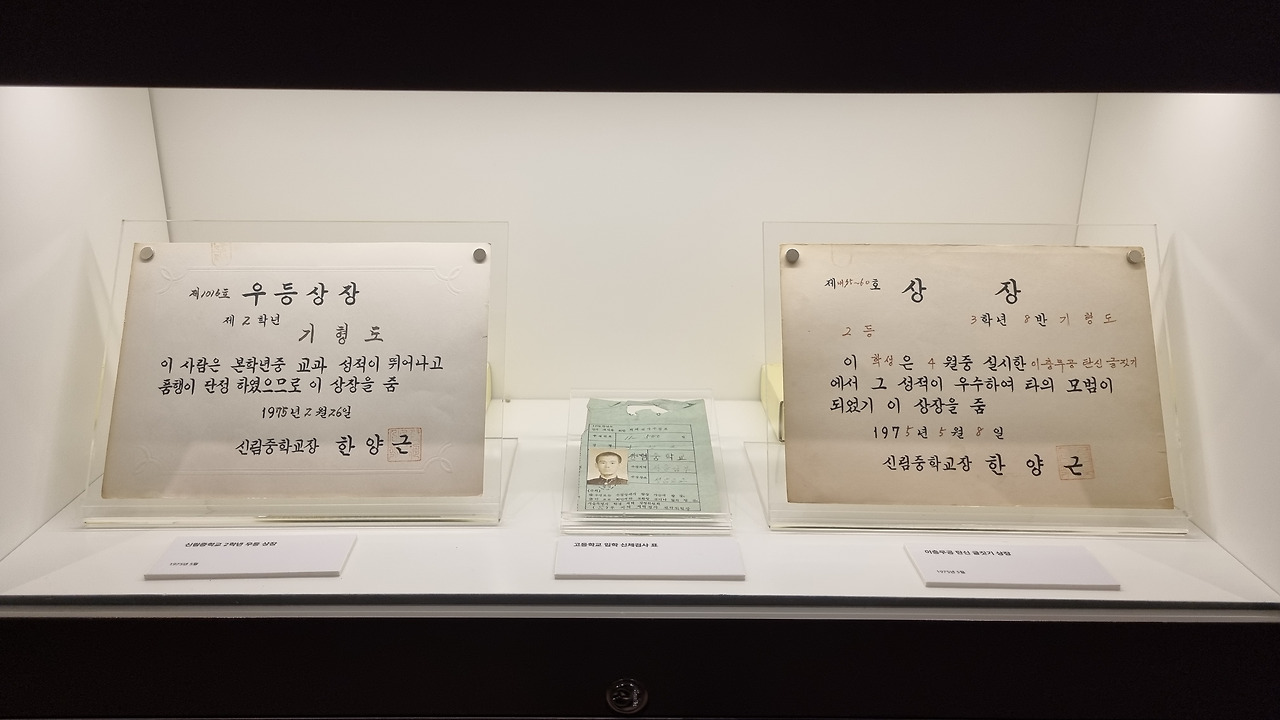 제1016호 우등상장
제 2 학년
기 형 도
이 사람은 본학년중 교과 성적이 뛰어나고
품행이 단정 하였으므로 이 상장을 줌
1975년 2월26일
신림중학교장 한 양 근
신림중학교 2학년 우등 상장
1975년 2월
신림중학교
고등학교 입학 신체검사 표
호 상 장
3학년 8반 기 형 도
2 등
이 학생은 4 월중 실시한 이충무공 탄신 글짓기
에서 그 성적이 우수하여 타의 모범이
되었기 이 상장을 줌
1975년 5월 8일
신림중학교장 한 양 근
이충무공 탄신 글짓기 상장
1975년 5월